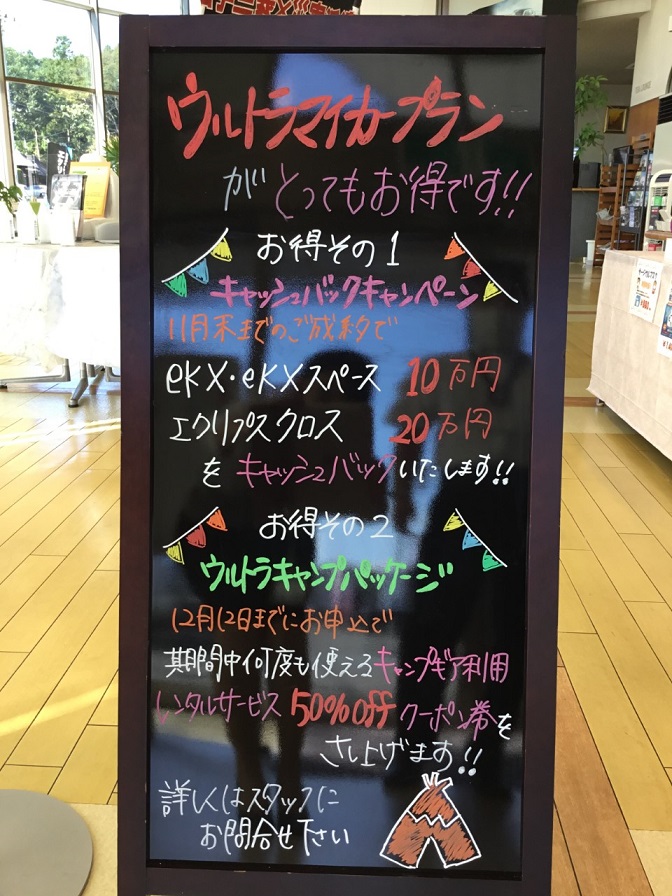 ウルトラマイカープラン
がとってもお得です!!
お得その1
キャッシュバックキャンペーン
11月末までのご成約で
eKX・eKXスペース 10万円
エクリプスクロス 20万円
をキャッシュバックいたします!!
お得その2
ウルトラキャンプパッケージ
12月12日までにお申込で
期間中何度も使えるキャンプギア利用
レンタルサービス50%offクーポン券を
さし上げます!!
詳しくはスタッフに
お問合せ下さい